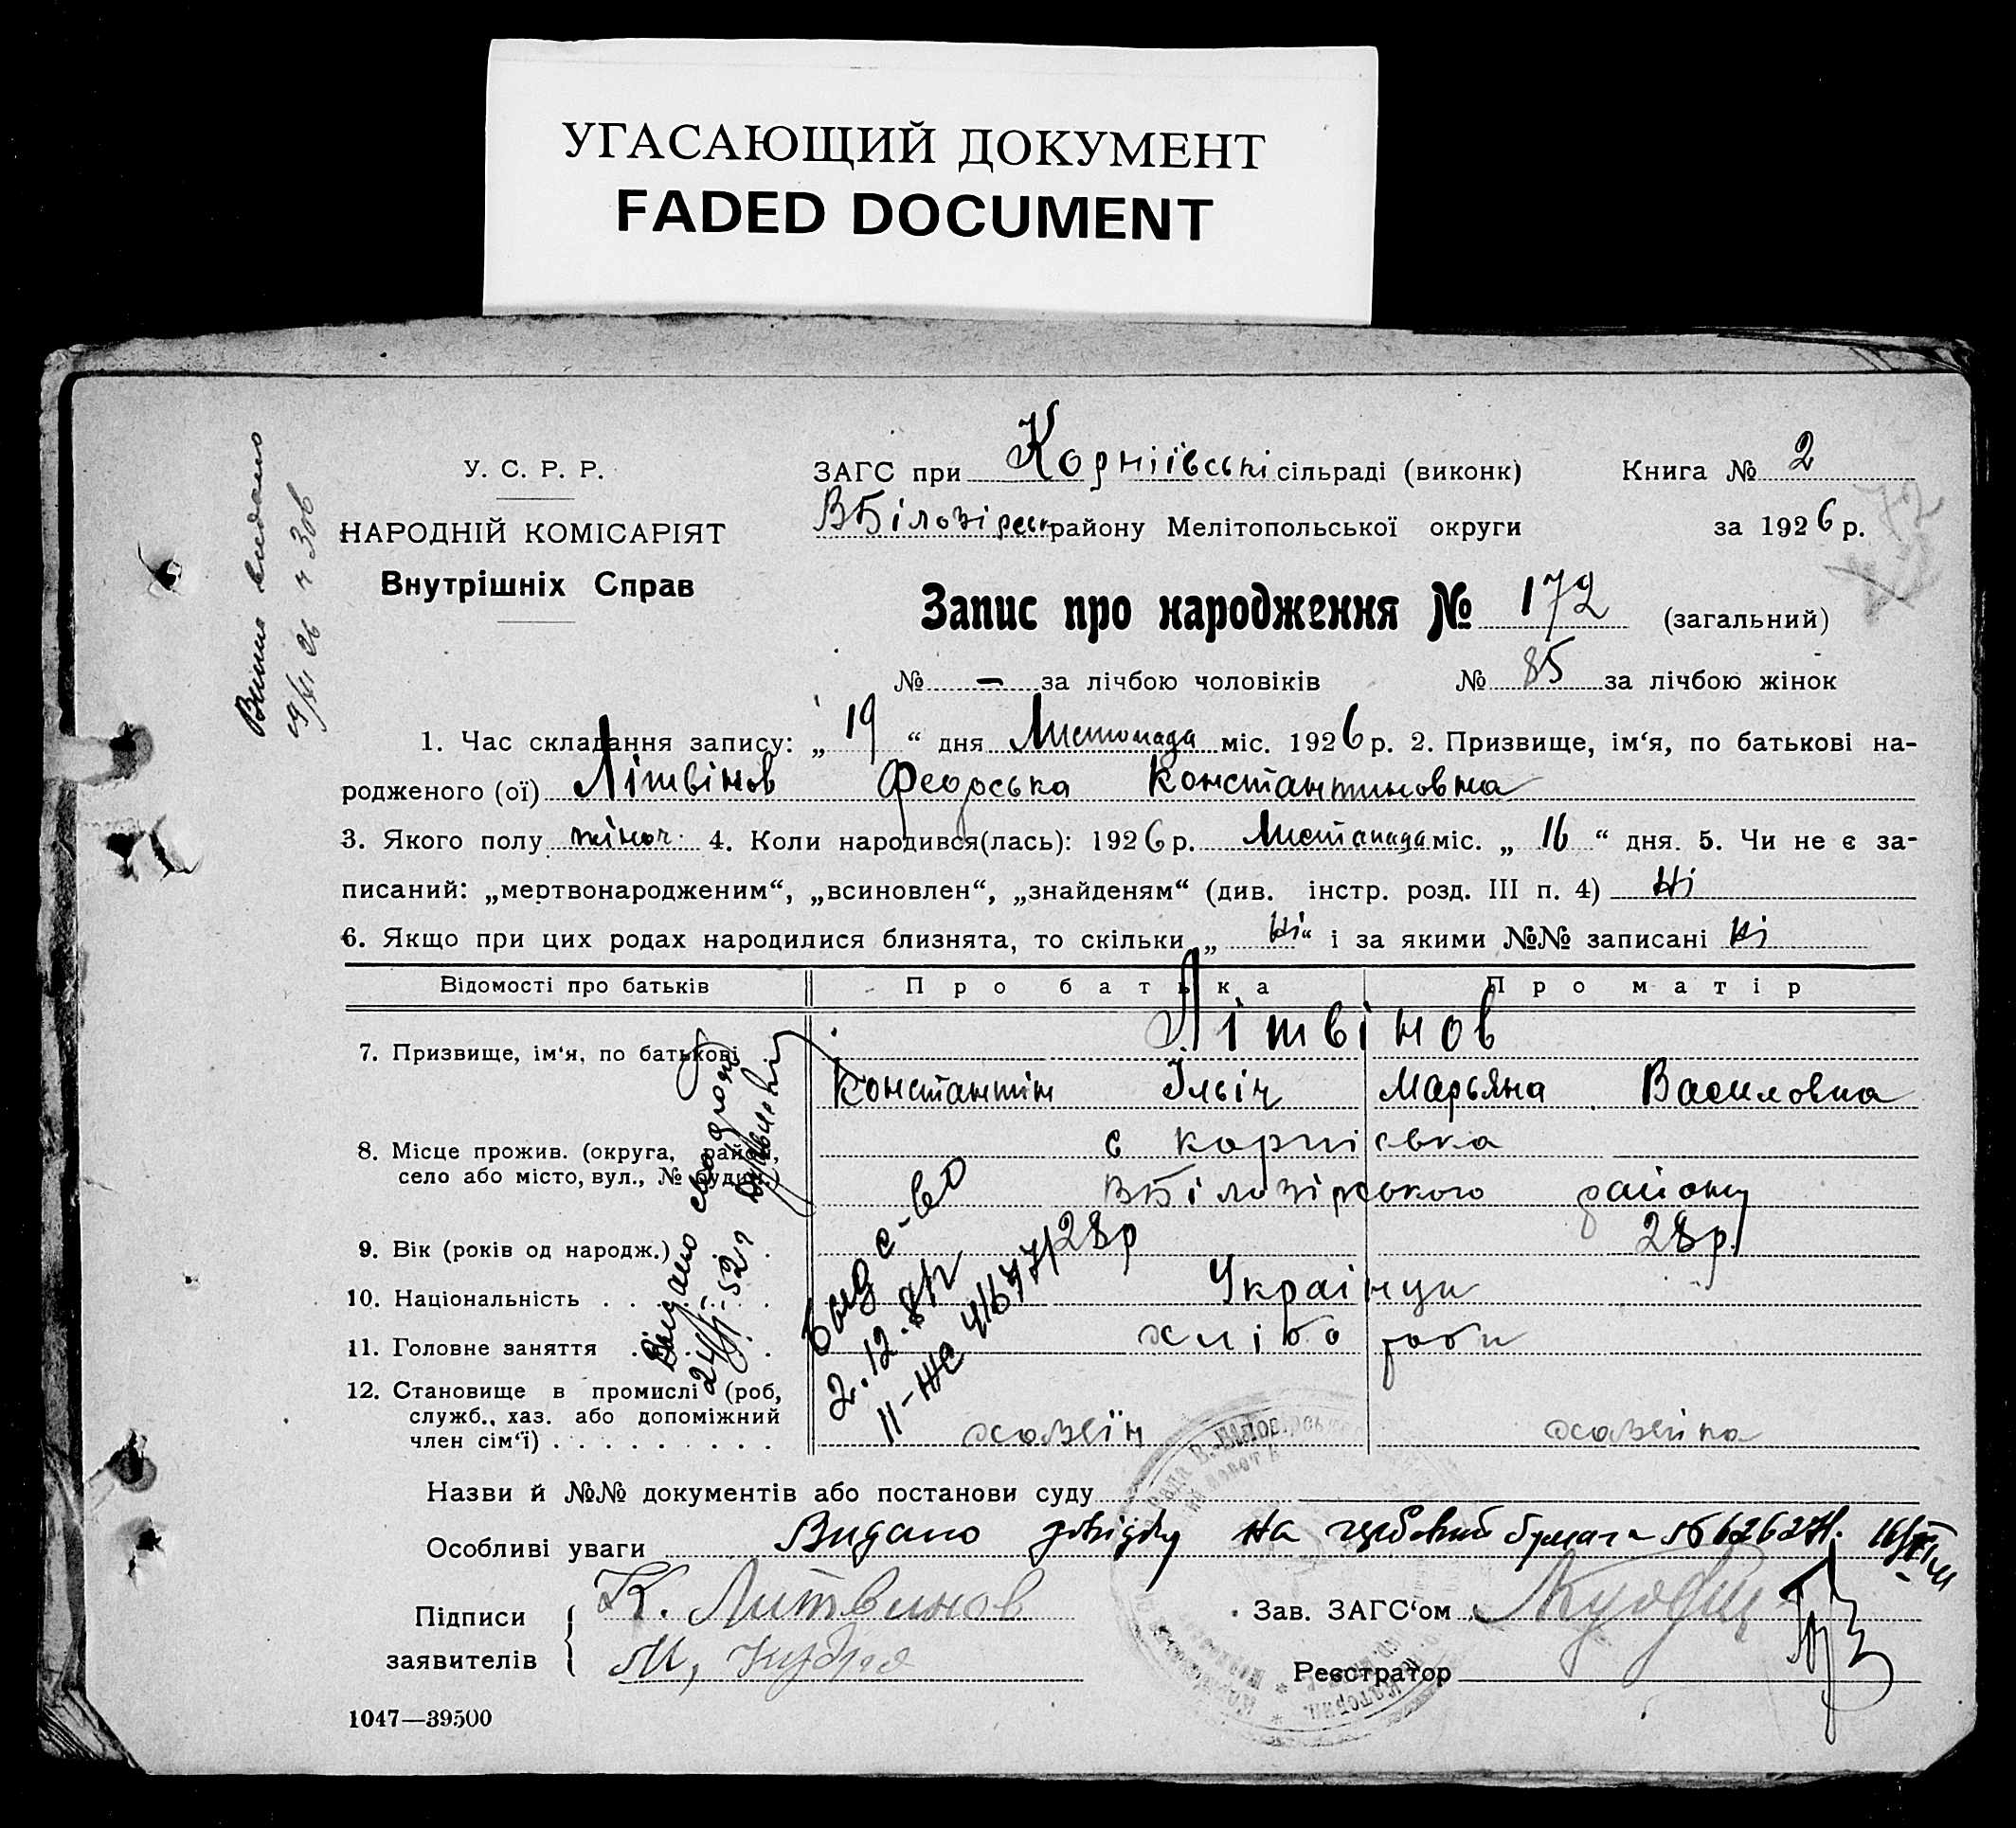 УГАСАЮЩИЙ ДОКУМЕНТ
FADED DOCUMENT
У. С. Р. Р.
НАРОДНІЙ КОМІСАРІЯТ
Внутрішніх Справ
ЗАГС при Корніївські сільраді (виконк) Книга № 2
ВБілозірськ району Мелітопольської округи за 1926 р.
72
Запис про народження № 172 (загальний)
№ — за лічбою чоловіків № 85 за лічбою жінок
1. Час складання запису: „ 19 “ дня Листопада міс. 1926 р. 2. Призвище, ім‘я, по батькові на-
родженого (ої) Літвінов Феодоська Константиновна
3. Якого полу жіноч. 4. Коли народився(лась): 1926 р. Листапада міс. „ 16 “ дня. 5. Чи не є за-
писаний: „мертвонародженим“, „всиновлен“, „знайденям“ (див. інстр. розд. III п. 4) Ні
6. Якщо при цих родах народилися близнята, то скільки „ Ні “ і за якими №№ записані Ні
Відомості про батьків Про батька Про матір
7. Призвище, ім‘я, по батькові Літвінов
Константін Ільіч Марьяна Василовна
8. Місце прожив. (округа, район, с корнієвка
село або місто, вул., № будин.) ВБілозірського району
9. Вік (років од народж.) 28р 28р.
10. Національність Українци
11. Головне заняття хліборобы
12. Становище в промислі (роб,
служб., хаз. або допоміжний
член сім‘ї) хозяїн хозяйка
Назви й №№ документів або постанови суду
Особливі уваги Видано довідку на
Підписи
заявителів
К. Литвинов
М, Кудря
Зав. ЗАГС‘ом
Реєстратор
1047—39500
Випис видано
19/XI 26
Видано
Выд с-во
2.12.
II-ЖС